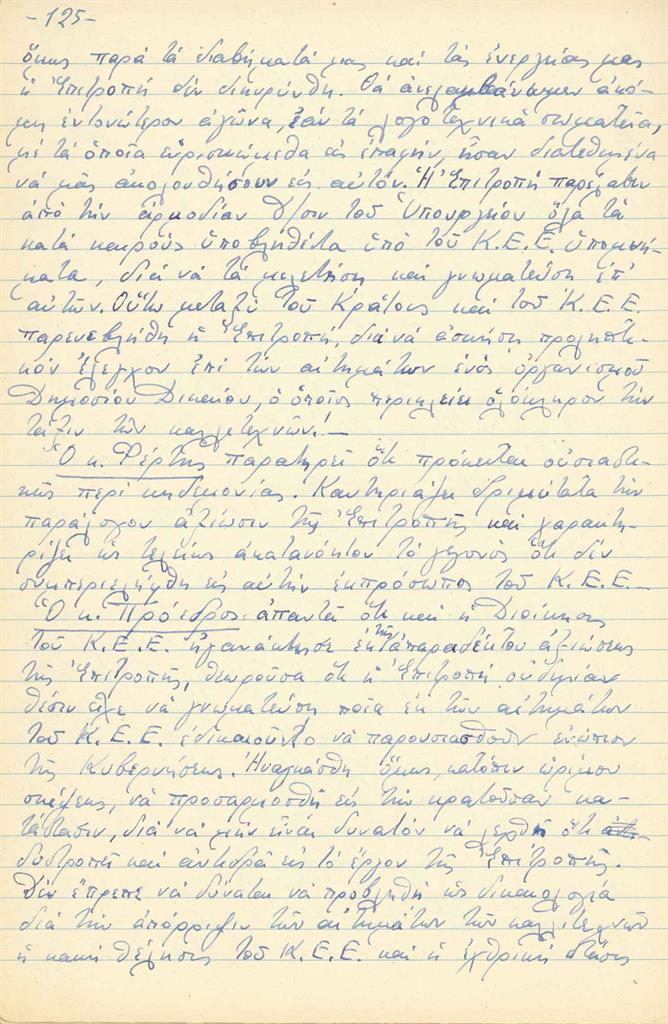 -125-
ὅμως παρά τά διαβήματά μας καί τάς ἐνεργείας μας
ἡ Ἐπιτροπή δέν διηυρύνθη. Θά ἀνελαμβάνωμεν ἀκό-
μη ἐντονώτερον ἀγῶνα, ἐάν τά λογοτεχνικά σωματεῖα,
μέ τά ὁποῖα εὑρισκόμεθα εἰς ἐπαφήν, ἦσαν διατεθημένα
νά μᾶς ἀκολουθήσουν εἰς αὐτόν. Ἡ Ἐπιτροπή παρέλαβεν
ἀπό τήν ἁρμοδίαν Δ/σιν τοῦ Ὑπουργείου ὅλα τά
κατά καιρούς ὑποβληθέντα ὑπό τοῦ Κ.Ε.Ε. ὑπομνή-
ματα, διά νά τά μελετήσῃ καί γνωματεύσῃ ἐπ'
αὐτῶν. Οὕτω μεταξύ τοῦ Κράτους καί τοῦ Κ.Ε.Ε.
παρενεβλήθη ἡ Ἐπιτροπή, διά νά ἀσκήσῃ προληπτι-
κόν ἔλεγχον ἐπί τῶν αἰτημάτων ἑνός ὀργανισμοῦ
Δημοσίου Δικαίου, ὁ ὁποῖος περικλείει ὁλόκληρον τήν
τάξιν τῶν καλλιτεχνῶν!—
Ὁ κ. Φέρτης παρατηρεῖ ὅτι πρόκειται οὐσιαστι-
κῶς περί κηδεμονίας. Καυτηριάζει δριμύτατα τήν
παράλογον ἀξίωσιν τῆς Ἐπιτροπῆς καί χαρακτη-
ρίζει ὡς τελείως ἀκατανόητον τό γεγονός ὅτι δέν
συμπεριελήφθη εἰς αὐτήν ἐκπρόσωπος τοῦ Κ.Ε.Ε.—
Ὁ κ. Πρόεδρος ἀπαντᾶ ὅτι καί ἡ Διοίκησις
τοῦ Κ.Ε.Ε. ἠγανάκτησε ἐκ τῆς ἀπαραδέκτου ἀξιώσεως
τῆς Ἐπιτροπῆς, θεωροῦσα ὅτι ἡ Ἐπιτροπή οὐδεμίαν
θέσιν εἶχε νά γνωματεύσῃ ποῖα ἐκ τῶν αἰτημάτων
τοῦ Κ.Ε.Ε. ἐδικαιοῦτο νά παρουσιασθοῦν ἐνώπιον
τῆς Κυβερνήσεως. Ἠναγκάσθη ὅμως, κατόπιν ὡρίμου
σκέψεως, νά προσαρμοσθῇ εἰς τήν κρατοῦσαν κα-
τάστασιν, διά νά μήν εἶναι δυνατόν νά λεχθῇ ὅτι
δυστροπεῖ καί ἀντιδρᾶ εἰς τό ἔργον τῆς Ἐπιτροπῆς.
Δέν ἔπρεπε νά δύναται νά προβληθῇ ὡς δικαιολογία
διά τήν ἀπόρριψιν τῶν αἰτημάτων τῶν καλλιτεχνῶν
ἡ κακή θέλησις τοῦ Κ.Ε.Ε. καί ἡ ἐχθρική στάσις